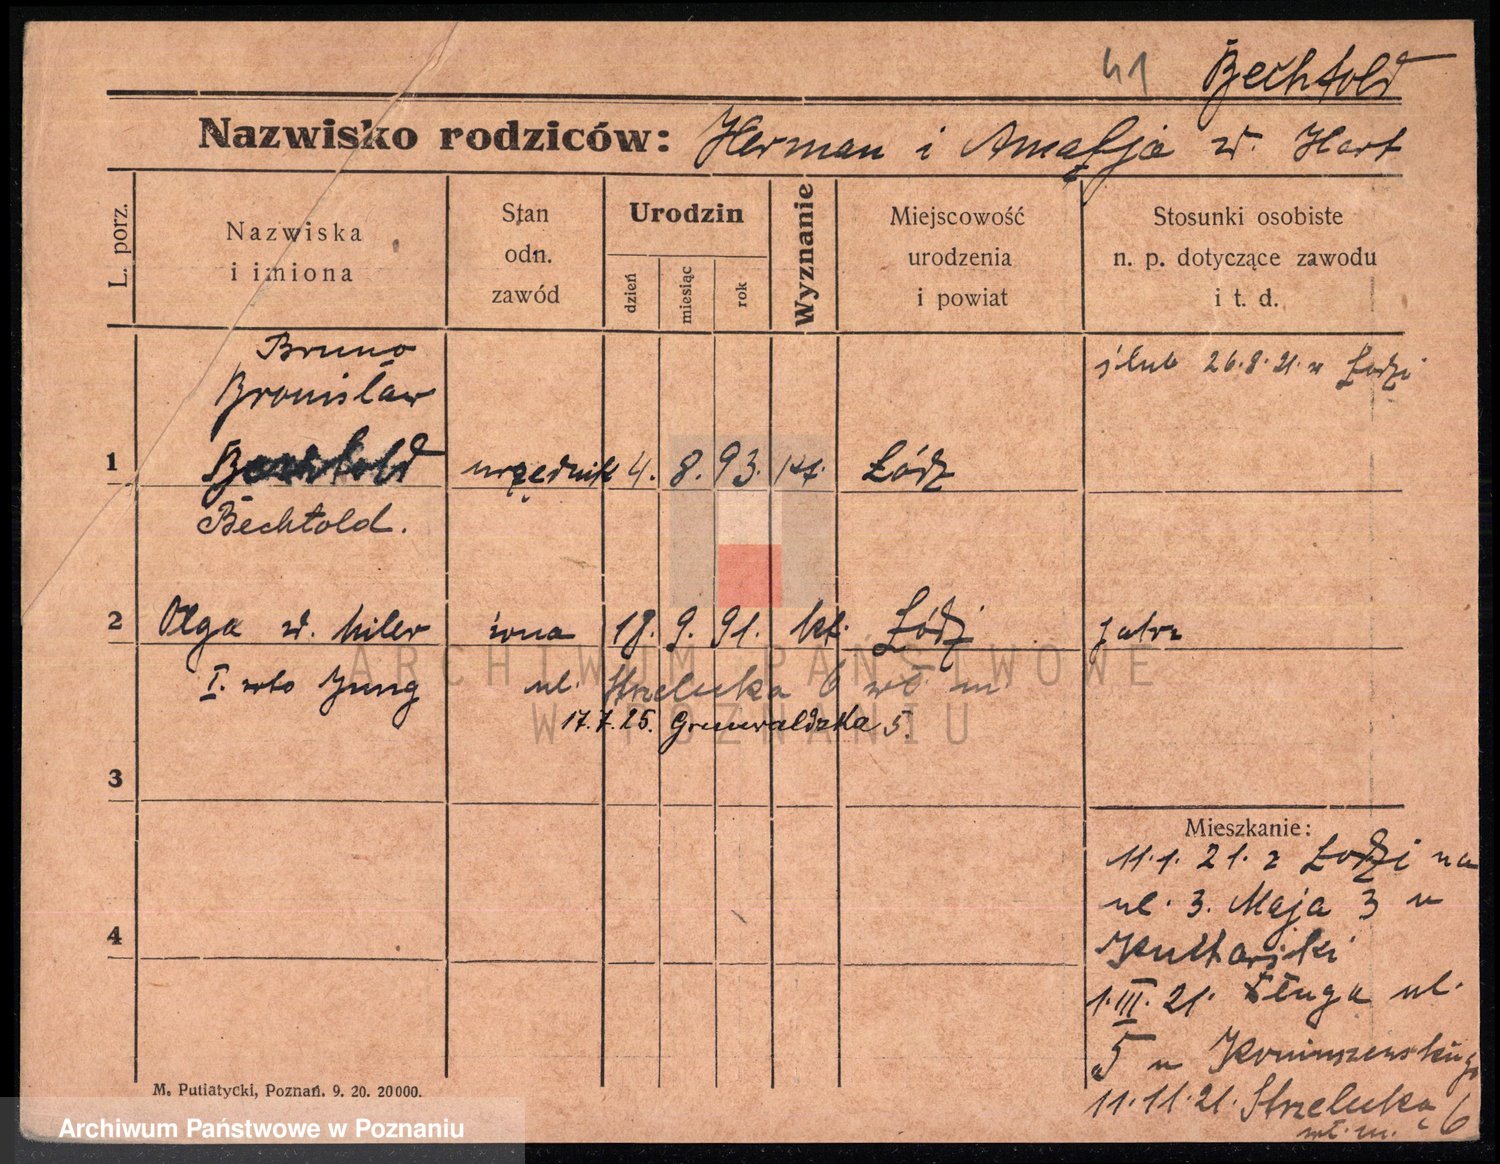 41 Bechtold
Nazwisko rodziców: Herman i Amalja z d. Hart
L. porz.
Nazwiska
i imiona
Stan
odn.
zawód
Urodzin
dzień
miesiąc
rok
Wyznanie
Miejscowość
urodzenia
i powiat
Stosunki osobiste
n. p. dotyczące zawodu
i t. d.
Bruno
Bronisław
ślub 26.8.21. w Łodzi
1 Bechtold urzędnik 4. 8. 93. kt. Łódz
Bechtold.
2 Olga z d. Miler żona 18. 9. 91. kt. Łódź
I. voto Jung
ul. Strzelecka 6 wł m
17.7.25. Grunwaldzka 5.
3
4
Mieszkanie:
11.1.21. z Łodzi na
ul. 3. Maja 3 u
1.III.21. Długa ul.
5 u
11.11.21. Strzelecka 6
wł. m.
M. Putiatycki, Poznań. 9. 20. 20000.
ARCHIWUM PAŃSTWOWE
W POZNANIU
Archiwum Państwowe w Poznaniu